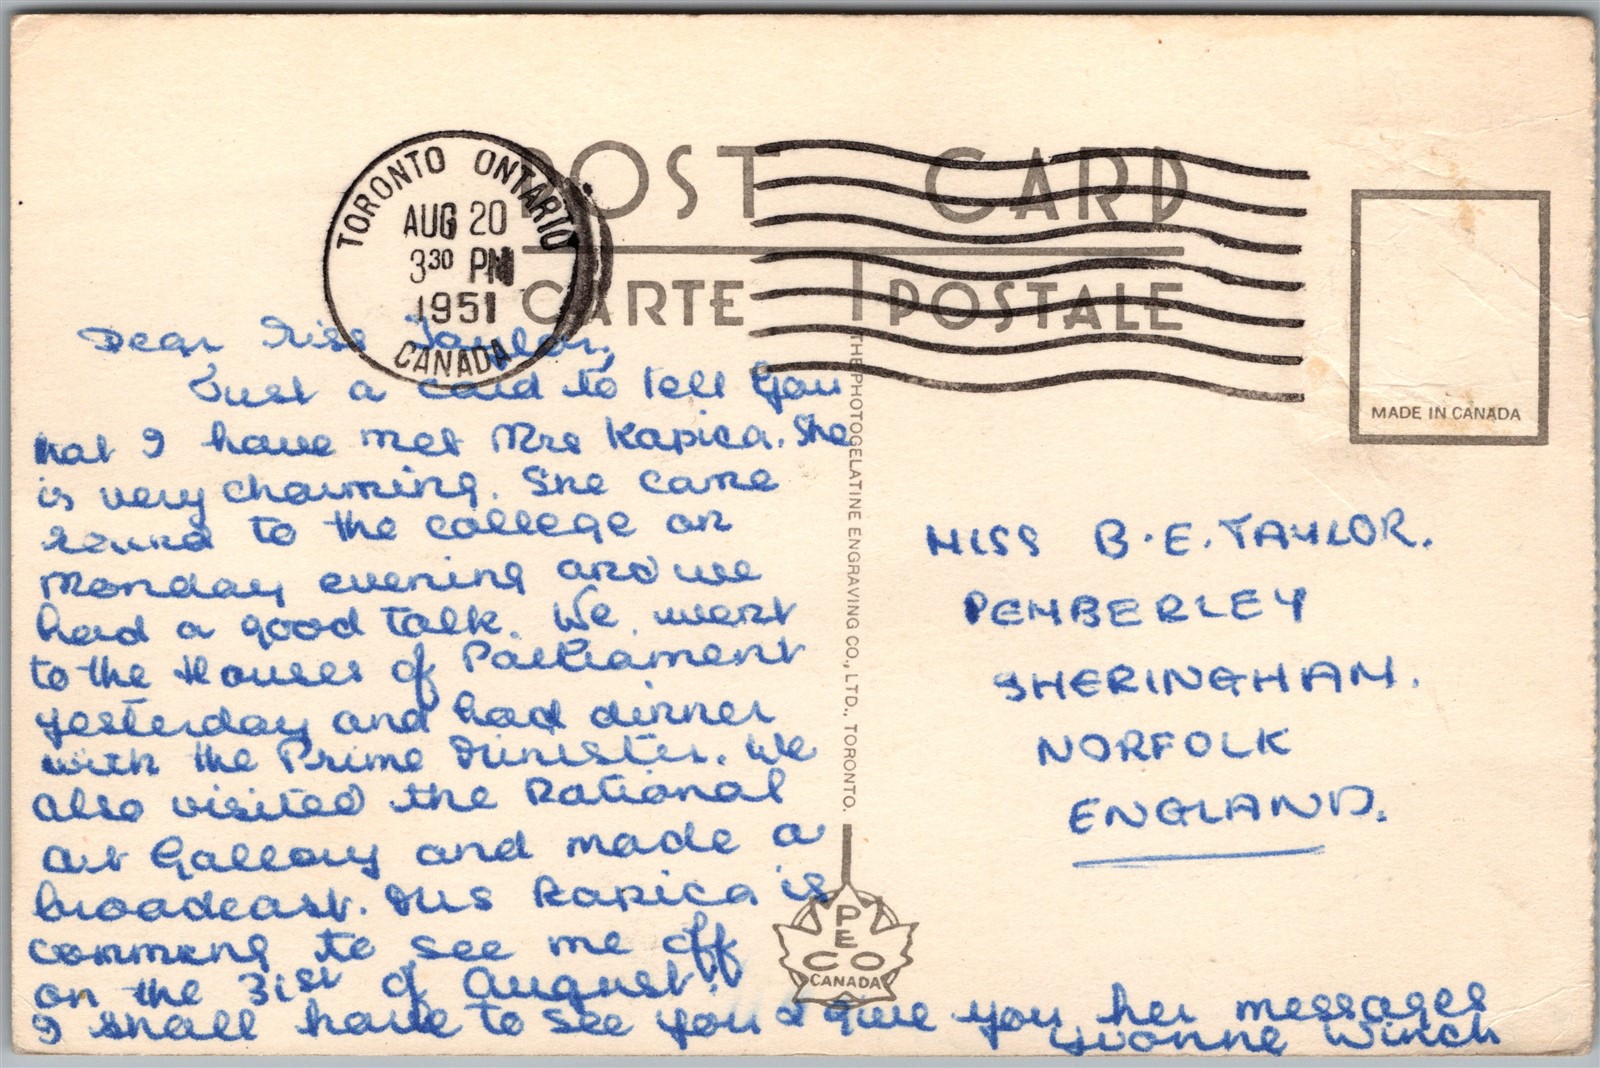 POST CARD
CARTE POSTALE
TORONTO ONTARIO
AUG 20
3 30 PM
1951
CANADA
MADE IN CANADA
Dear Miss Taylor,
Just a card to tell you
that I have met Mrs Kapica. She
is very charming. She came
round to the college on
Monday evening and we
had a good talk. We went
to the Houses of Parliament
yesterday and had dinner
with the Prime Minister. We
also visited the National
Art Gallery and made a
broadcast. Mrs Kapica is
comming to see me off
on the 31st of August.
I shall have to see you & give you her messages
Yvonne Winch
THE PHOTOGELATINE ENGRAVING CO., LTD., TORONTO.
PECO
CANADA
MISS B.E. TAYLOR.
PEMBERLEY
SHERINGHAM.
NORFOLK
ENGLAND.